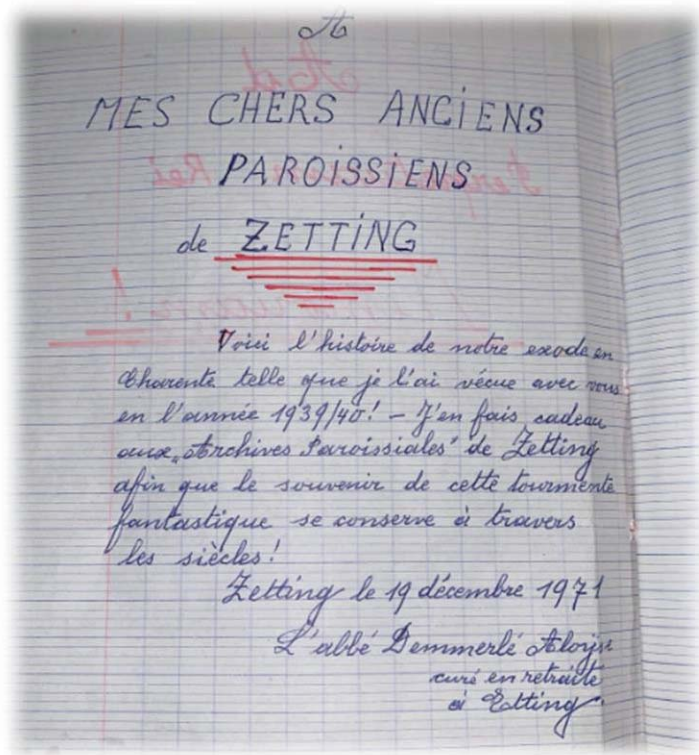 A
MES CHERS ANCIENS
PAROISSIENS
de ZETTING
Voici l'histoire de notre exode en
Charente telle que je l'ai vécue avec vous
en l'année 1939/40! - J'en fais cadeau
aux „Archives Paroissiales" de Zetting
afin que le souvenir de cette tourmente
fantastique se conserve à travers
les siècles!
Zetting le 19 décembre 1971
L'abbé Demmerlé Aloyse
curé en retraite
à Etting.